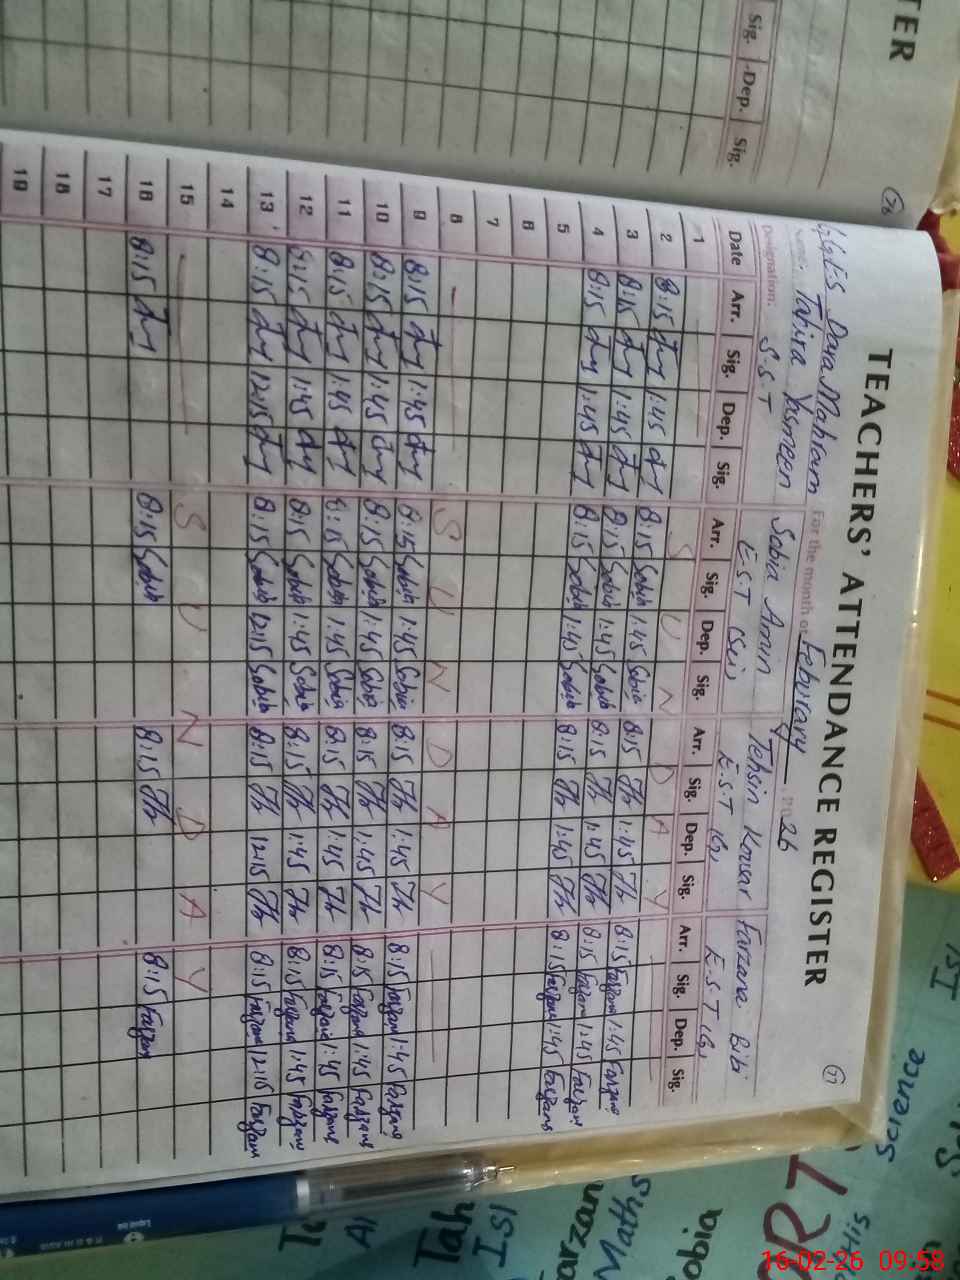 TER
Sig. Dep. Sig.
76
77
TEACHERS' ATTENDANCE REGISTER
G.G.E.S Dara Mahram For the month of Feburary 2026
Name: Tahira Yasmeen Sobia Amin Tehsin Kousar Farzana Bibi
Designation. S.S.T E.S.T (Sci) E.S.T (G) E.S.T (G)
Date Arr. Sig. Dep. Sig. Arr. Sig. Dep. Sig. Arr. Sig. Dep. Sig. Arr. Sig. Dep. Sig.
1 S U N D A Y
2 8:15 1:45 8:15 Sobia 1:45 Sobia 8:15 1:45 8:15 Farzana 1:45 Farzana
3 8:15 1:45 8:15 Sobia 1:45 Sobia 8:15 1:45 8:15 Farzana 1:45 Farzana
4 8:15 1:45 8:15 Sobia 1:45 Sobia 8:15 1:45 8:15 Farzana 1:45 Farzana
5
6
7
8 S U N D A Y
9 8:15 1:45 8:15 Sobia 1:45 Sobia 8:15 1:45 8:15 Farzana 1:45 Farzana
10 8:15 1:45 8:15 Sobia 1:45 Sobia 8:15 1:45 8:15 Farzana 1:45 Farzana
11 8:15 1:45 8:15 Sobia 1:45 Sobia 8:15 1:45 8:15 Farzana 1:45 Farzana
12 8:15 1:45 8:15 Sobia 1:45 Sobia 8:15 1:45 8:15 Farzana 1:45 Farzana
13 8:15 12:15 8:15 Sobia 12:15 Sobia 8:15 12:15 8:15 Farzana 12:15 Farzana
14
15 S U N D A Y
16 8:15 8:15 Sobia 8:15 8:15 Farzana
17
18
19
Science
Maths
Tah
ISl
16-02-26 09:58